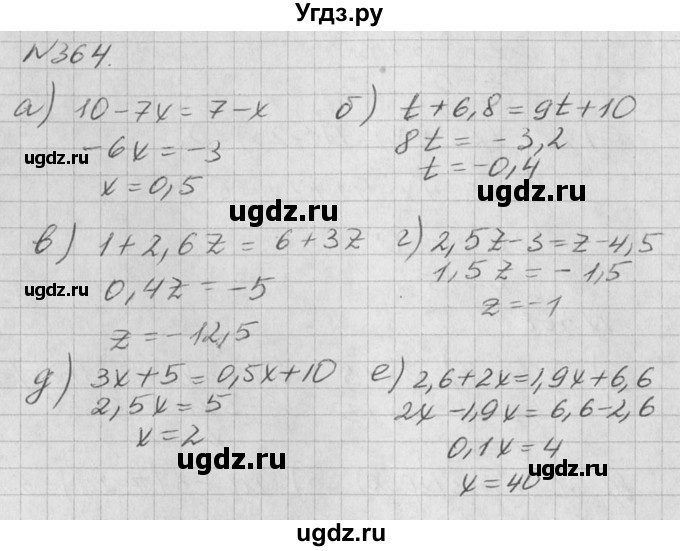 Угдз.ру
№364.
а) 10-7x=7-x
-6x=-3
x=0,5
б) t+6,8=9t+10
8t=-3,2
t=-0,4
в) 1+2,6z=6+3z
0,4z=-5
z=-12,5
г) 2,5z-3=z-4,5
1,5z=-1,5
z=-1
д) 3x+5=0,5x+10
2,5x=5
x=2
е) 2,6+2x=1,9x+6,6
2x-1,9x=6,6-2,6
0,1x=4
x=40
ugdz.ru
ugdz.ru
ugdz.ru
ugdz.ru
ugdz.ru
ugdz.ru
ugdz.ru
ugdz.ru
ugdz.ru